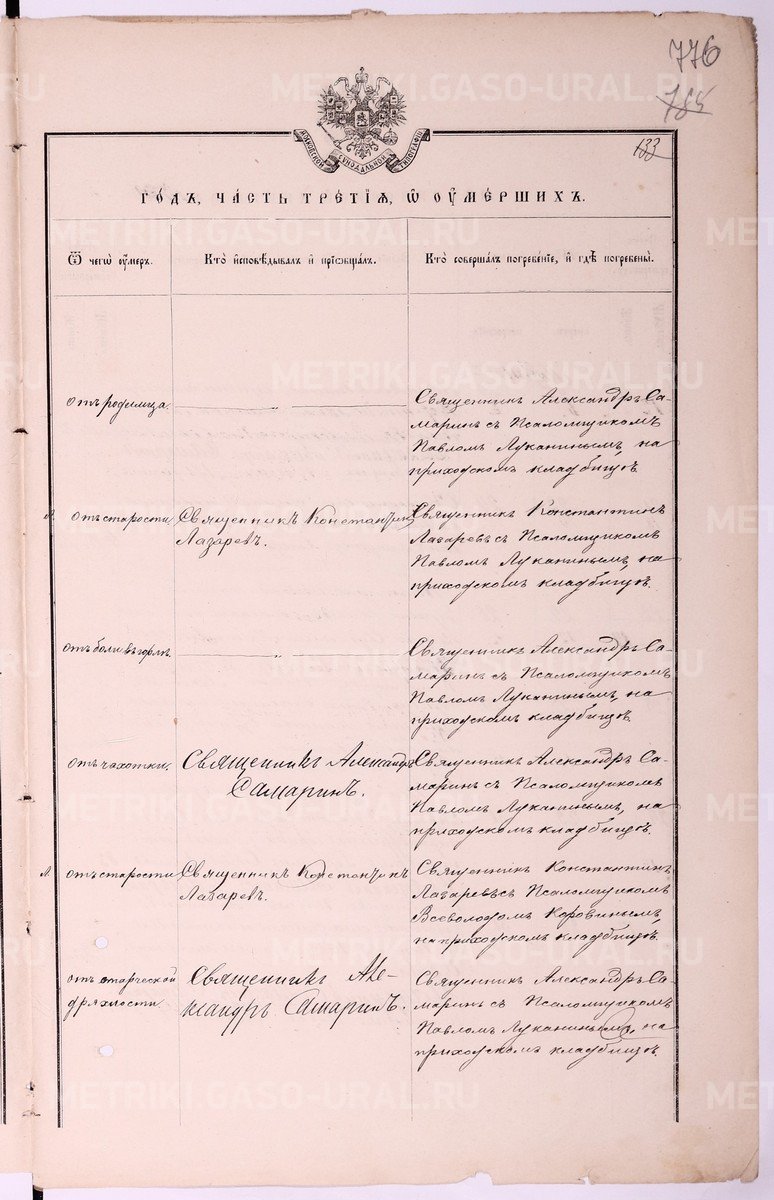 776
185
133
МОСКОВСКОЙ СѴНОДАЛЬНОЙ ТИПОГРАФІИ
ГО́ДЪ, ЧА́СТЬ ТРЕ́ТІѦ, Ѿ ОУ҆МЕ́РШИХЪ.
Ѿ чегѡ̀ оу҆́меръ.
Кто̀ и҆сповѣ́дывалъ и҆ прїѡбща́лъ.
Кто̀ соверша́лъ погребе́нїе, и҆ гдѣ̀ погребены̀.
Отъ родимца.
— „ —
Священникъ Александръ Са-
маринъ съ Псаломщикомъ
Павломъ Луканинымъ, на
приходскомъ кладбищѣ.
Отъ старости.
Священникъ Константинъ
Лазаревъ.
Священникъ Константинъ
Лазаревъ съ Псаломщикомъ
Павломъ Луканинымъ, на
приходскомъ кладбищѣ.
Отъ боли въ горлѣ.
— „ —
Священникъ Александръ Са-
маринъ съ Псаломщикомъ
Павломъ Луканинымъ, на
приходскомъ кладбищѣ.
Отъ чахотки.
Священникъ Александръ
Самаринъ.
Священникъ Александръ Са-
маринъ съ Псаломщикомъ
Павломъ Луканинымъ, на
приходскомъ кладбищѣ.
Отъ старости
Священникъ Константинъ
Лазаревъ.
Священникъ Константинъ
Лазаревъ съ Псаломщикомъ
Всеволодомъ Коровинымъ,
на приходскомъ кладбищѣ.
отъ старческой
дряхлости.
Священникъ Але-
ксандръ Самаринъ.
Священникъ Александръ Са-
маринъ съ Псаломщикомъ
Павломъ Луканинымъ, на
приходскомъ кладбищѣ.
METRIKI.GASO-URAL.RU